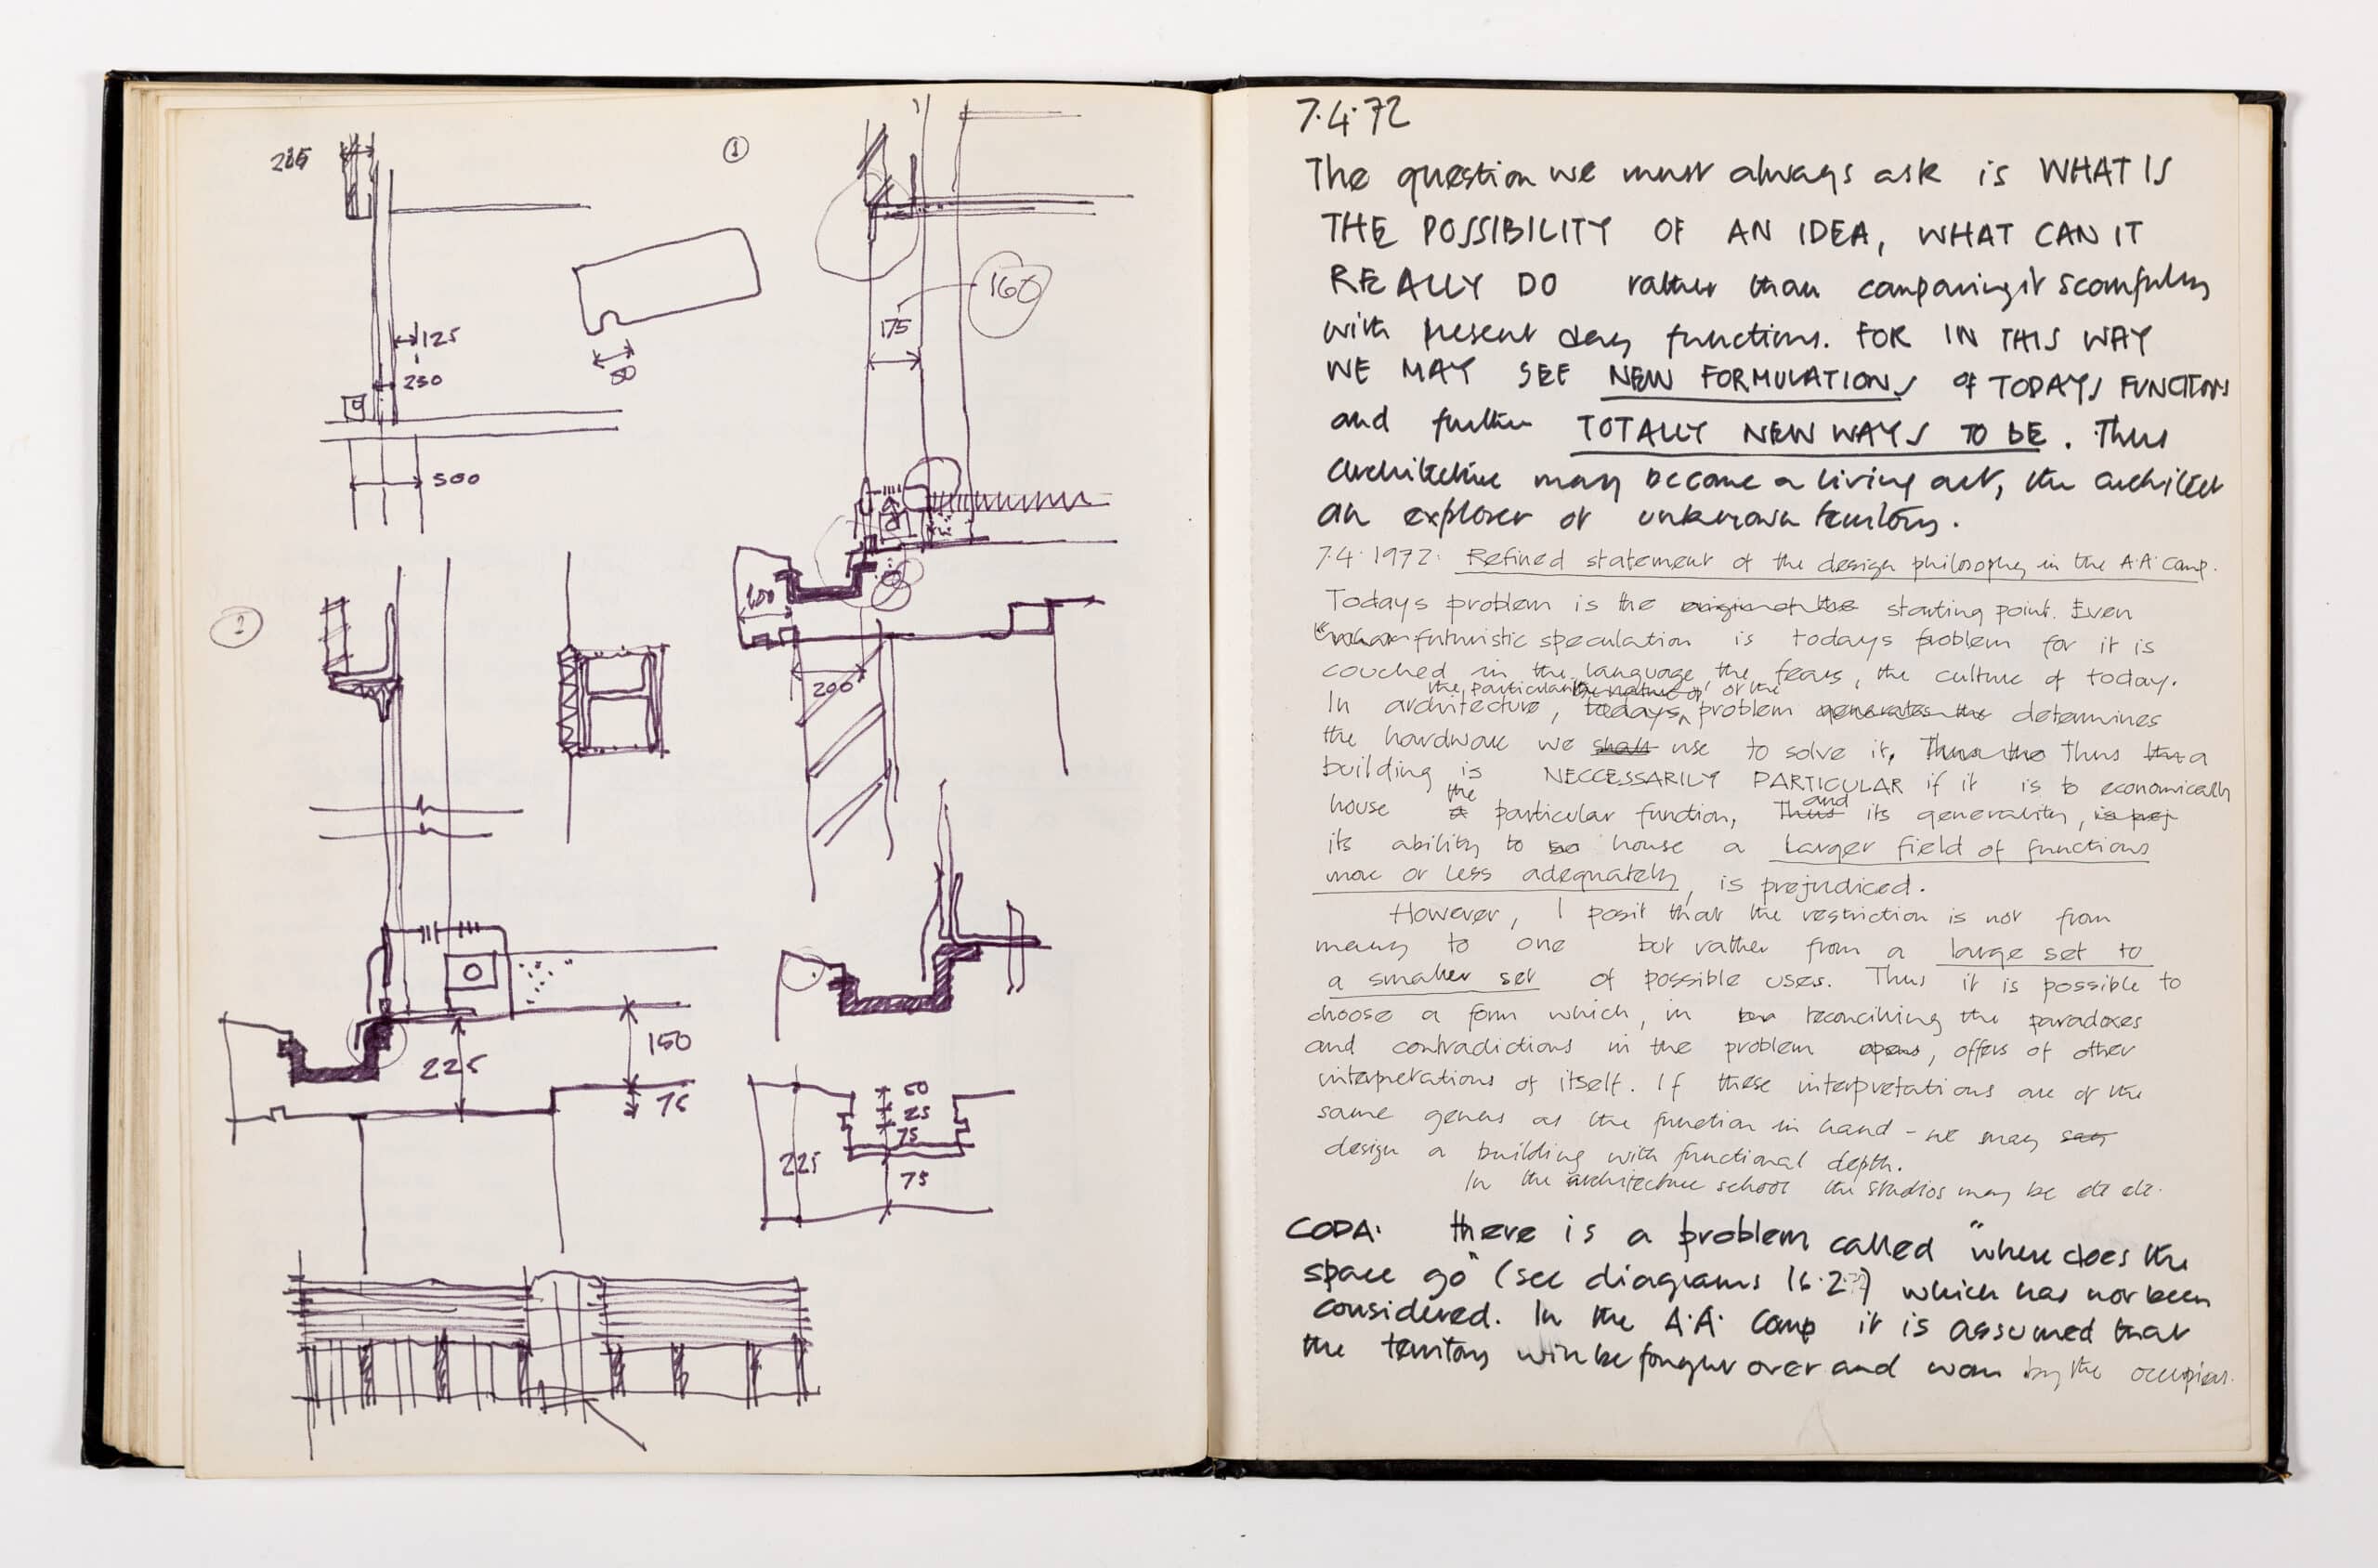 215
125
250
500
50
1
160
175
100
200
2
225
150
75
50
25
75
225
75
7.4.72
The question we must always ask is WHAT IS
THE POSSIBILITY OF AN IDEA, WHAT CAN IT
REALLY DO rather than comparing it scornfully
with present day functions. FOR IN THIS WAY
WE MAY SEE NEW FORMULATIONS of TODAYS FUNCTIONS
and further TOTALLY NEW WAYS TO BE. Thus
architecture may become a living act, the architect
an explorer of unknown territory.
7.4.1972: Refined statement of the design philosophy in the A.A. Comp.
Todays problem is the origin of the starting point. Even
futuristic speculation is todays problem for it is
couched in the language, the fears, the culture of today.
the particular the nature of of the
In architecture, todays problem generates the determines
the hardware we shall use to solve it. Thus the Thus the a
building is NECCESSARILY PARTICULAR if it is to economically
the and
house a particular function, Thus its generality, is prej
its ability to house a larger field of functions
more or less adequately, is prejudiced.
However, I posit that the restriction is not from
many to one but rather from a large set to
a smaller set of possible uses. Thus it is possible to
choose a form which, in reconciling the paradoxes
and contradictions in the problem opens, offers of other
interpretations of itself. If these interpretations are of the
same genus as the function in hand - we may say
design a building with functional depth.
In the architecture school the studios may be etc etc.
CODA: there is a problem called "where does the
space go" (see diagrams 16.2.) which has not been
considered. In the A.A. Comp it is assumed that
the territory will be fought over and won by the occupiers.